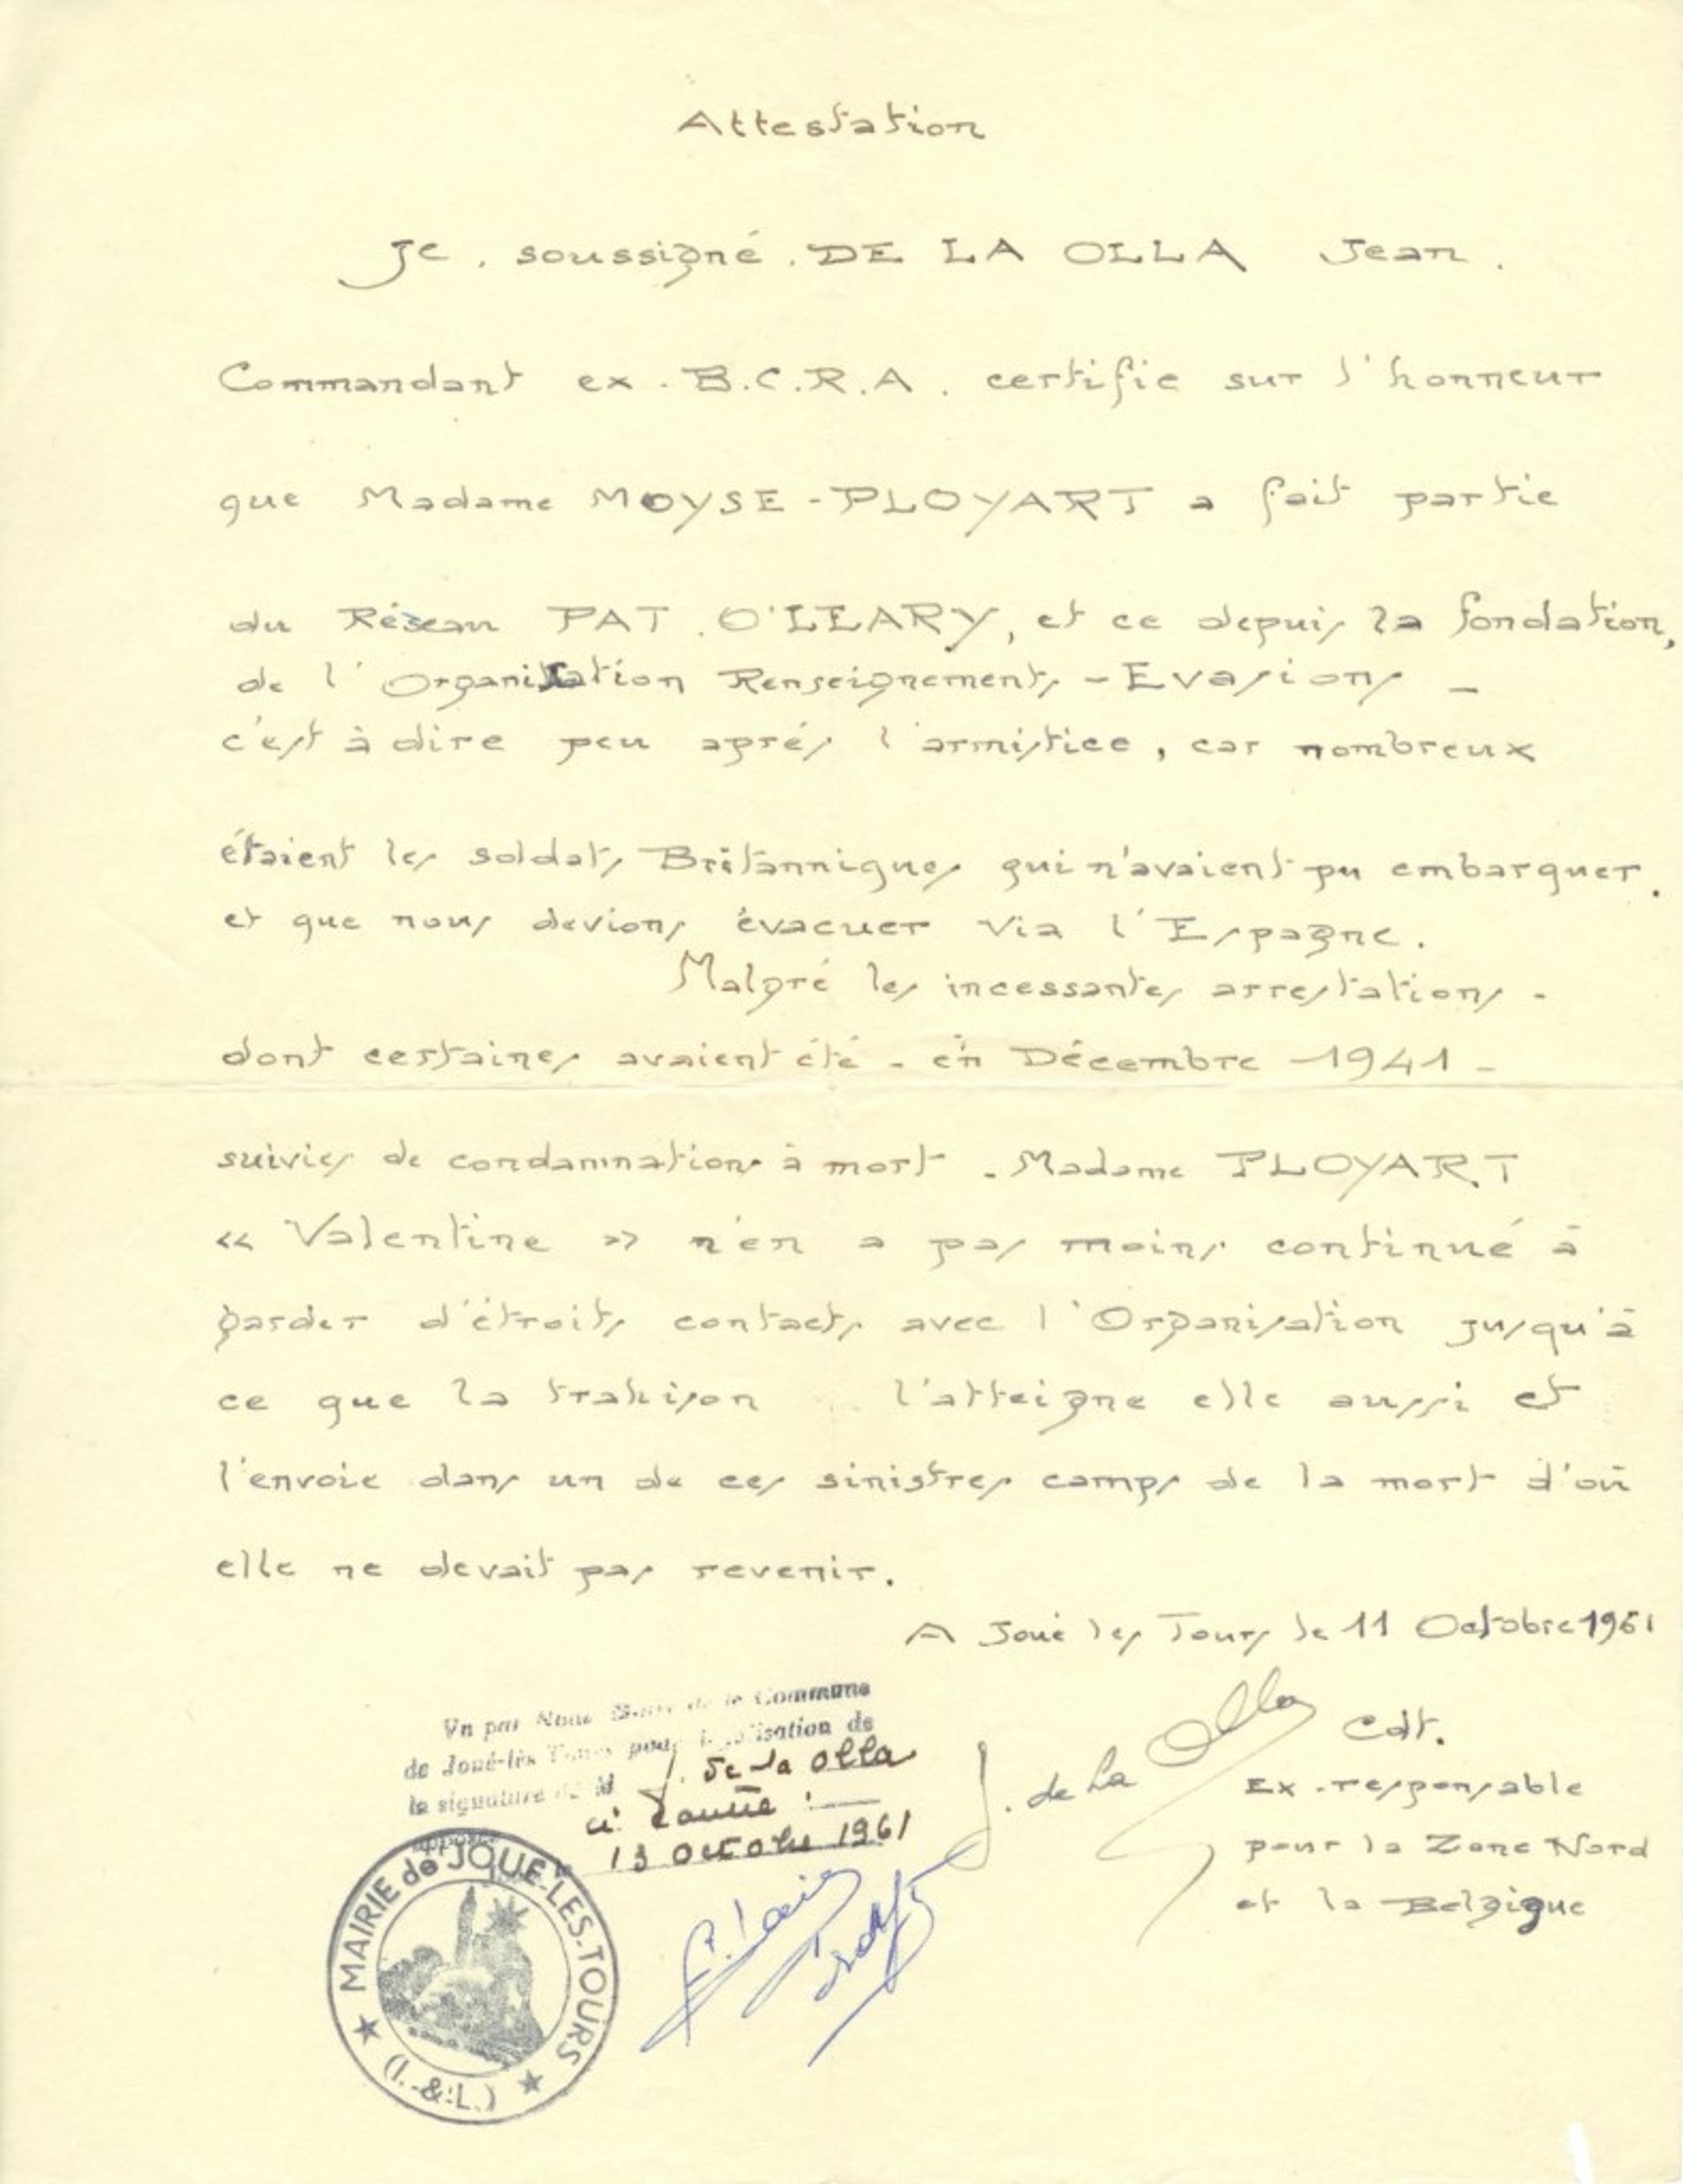 Attestation
Je, soussigné, DE LA OLLA Jean.
Commandant ex. B.C.R.A. certifie sur l'honneur
que Madame MOYSE-PLOYART a fait partie
du Réseau PAT. O'LEARY, et ce depuis la fondation,
de l'Organisation Renseignements - Evasions -
c'est à dire peu aprés l'armistice, car nombreux
étaient les soldats Britanniques qui n'avaient pu embarquer.
et que nous devions évacuer via l'Espagne.
Malgré les incessantes arrestations -
dont certaines avaient été - en Décembre 1941 -
suivies de condamnations à mort. Madame PLOYART
« Valentine » n'en a pas moins continué à
garder d'étroits contacts avec l'Organisation jusqu'à
ce que la trahison l'atteigne elle aussi et
l'envoie dans un de ces sinistres camps de la mort d'où
elle ne devait pas revenir.
A Joué les Tours le 11 Octobre 1961
Vu par Nous Maire de la Commune
de Joué-lès-Tours pour légalisation de
la signature de M. J. de la Olla
13 Octobre 1961
MAIRIE de JOUE-LES-TOURS
(I.-&-L.)
J. de La Olla
Cdt.
Ex-responsable
pour la Zone Nord
et la Belgique